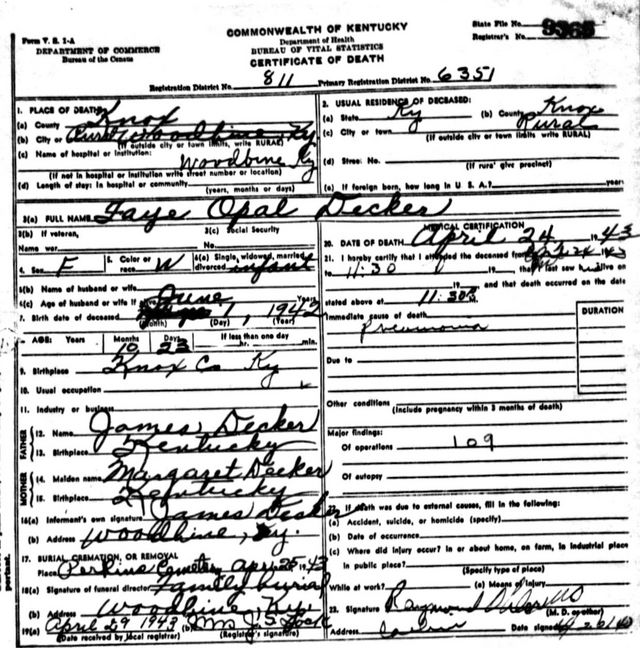 Form V. S. 1-A
DEPARTMENT OF COMMERCE
Bureau of the Census
COMMONWEALTH OF KENTUCKY
Department of Health
BUREAU OF VITAL STATISTICS
CERTIFICATE OF DEATH
State File No.
Registrar's No. 9365
Registration District No. 811 Primary Registration District No. 6351
1. PLACE OF DEATH
(a) County Knox
(b) City or Woodbine, Ky
(If outside city or town limits, write RURAL)
(c) Name of hospital or Institution: Woodbine Ky
(If not in hospital or institution write street number or location)
(d) Length of stay: In hospital or community
(years, months or days)
2. USUAL RESIDENCE OF DECEASED:
(a) State Ky (b) County Knox
(c) City or town Rural
(If outside city or town limits write RURAL)
(d) Street No.
(If rural give precinct)
(e) If foreign born, how long in U. S. A.? years
3(a) FULL NAME Faye Opal Decker
3(b) If veteran, 3(c) Social Security
Name war No.
4. Sex F 5. Color or race W 6(a) Single, widowed, married, divorced infant
6(b) Name of husband or wife
6(c) Age of husband or wife if Years
7. Birth date of deceased June 1, 1942
(Month) (Day) (Year)
8. AGE: Years Months Days If less than one day
10 23 hr. min.
9. Birthplace Knox Co Ky
10. Usual occupation
11. Industry or business
FATHER
12. Name James Decker
13. Birthplace Kentucky
MOTHER
14. Maiden name Margaret Decker
15. Birthplace Kentucky
16(a) Informant's own signature James Decker
(b) Address Woodbine, Ky.
17. BURIAL, CREMATION, OR REMOVAL
Place Perkins Cemetery April 25 1943
18(a) Signature of funeral director Family burial
(b) Address Woodbine, Ky
19(a) April 29 1943 (b) Mrs J. S.
(Date received by local registrar) (Registrar's signature)
MEDICAL CERTIFICATION
20. DATE OF DEATH April 24 1943
21. I hereby certify that I attended the deceased from
to 11:30 19 that I last saw h alive on
19 and that death occurred on the date
stated above at 11:30
Immediate cause of death DURATION
Pneumonia
Due to
Other conditions
(Include pregnancy within 3 months of death)
Major findings:
Of operations 109
Of autopsy
22. If death was due to external causes, fill in the following:
(a) Accident, suicide, or homicide (specify)
(b) Date of occurrence
(c) Where did injury occur? In or about home, on farm, in industrial place
In public place?
(Specify type of place)
While at work? (e) Means of Injury
23. Signature Raymond
(M. D. or other)
Address Date signed